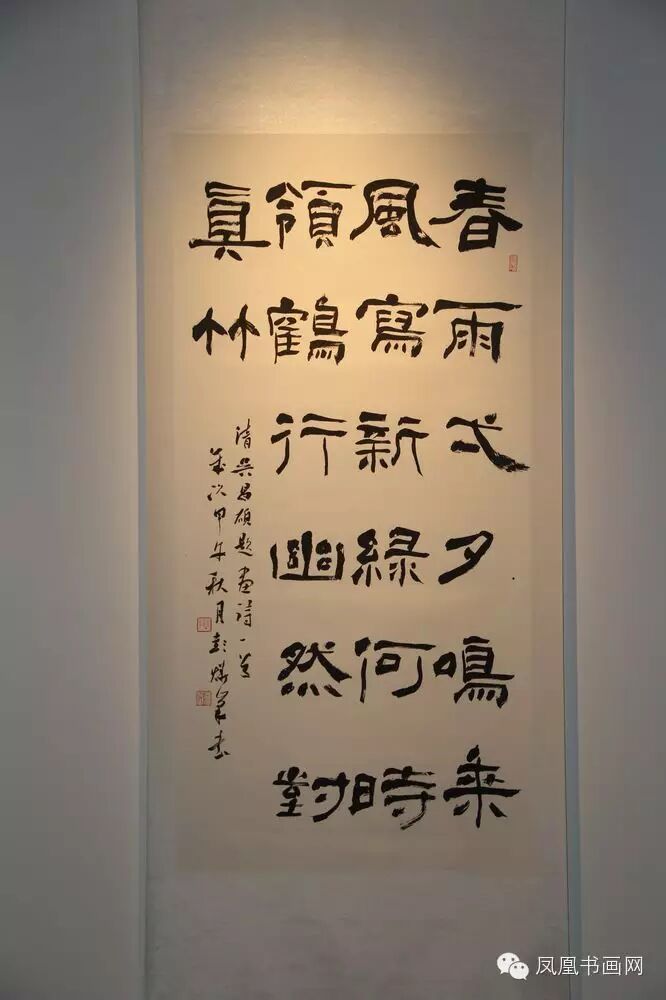 春雨弌夕鳴来
風寫新綠何時
領鶴行幽然對
真竹
清吳昌碩題畫詩一首
歲次甲午秋月彭
書
凤凰书画网